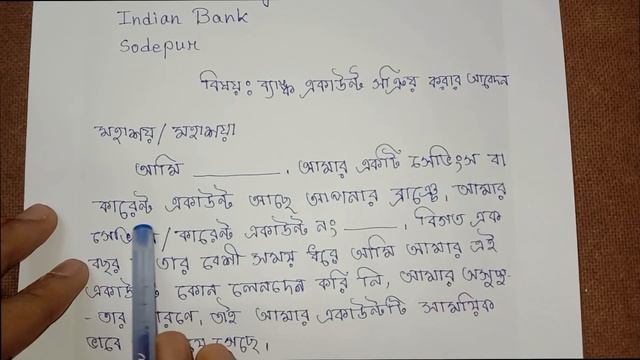 Indian Bank
Sodepur
বিষয়: ব্যাঙ্ক একাউন্ট সক্রিয় করার আবেদন
মহাশয়/মহাশয়া
আমি ________. আমার একটি সেভিংস বা
কারেন্ট একাউন্ট আছে আপনার ব্রাঞ্চে. আমার
/ কারেন্ট একাউন্ট নং ____. বিগত এক
বছর তার বেশী সময় ধরে আমি আমার এই
কোন লেনদেন করি নি, আমার অসুস্থ-
-তার কারণে, তাই আমার একাউন্টটি সাময়িক
ভাবে গেছে।